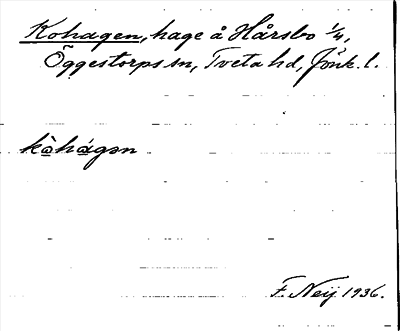 Kohagen, hage å Hårsbo 1/4,
Öggestorps sn, Tveta hd, Jönk. l.
kò̀hágən
F. Neij 1936.